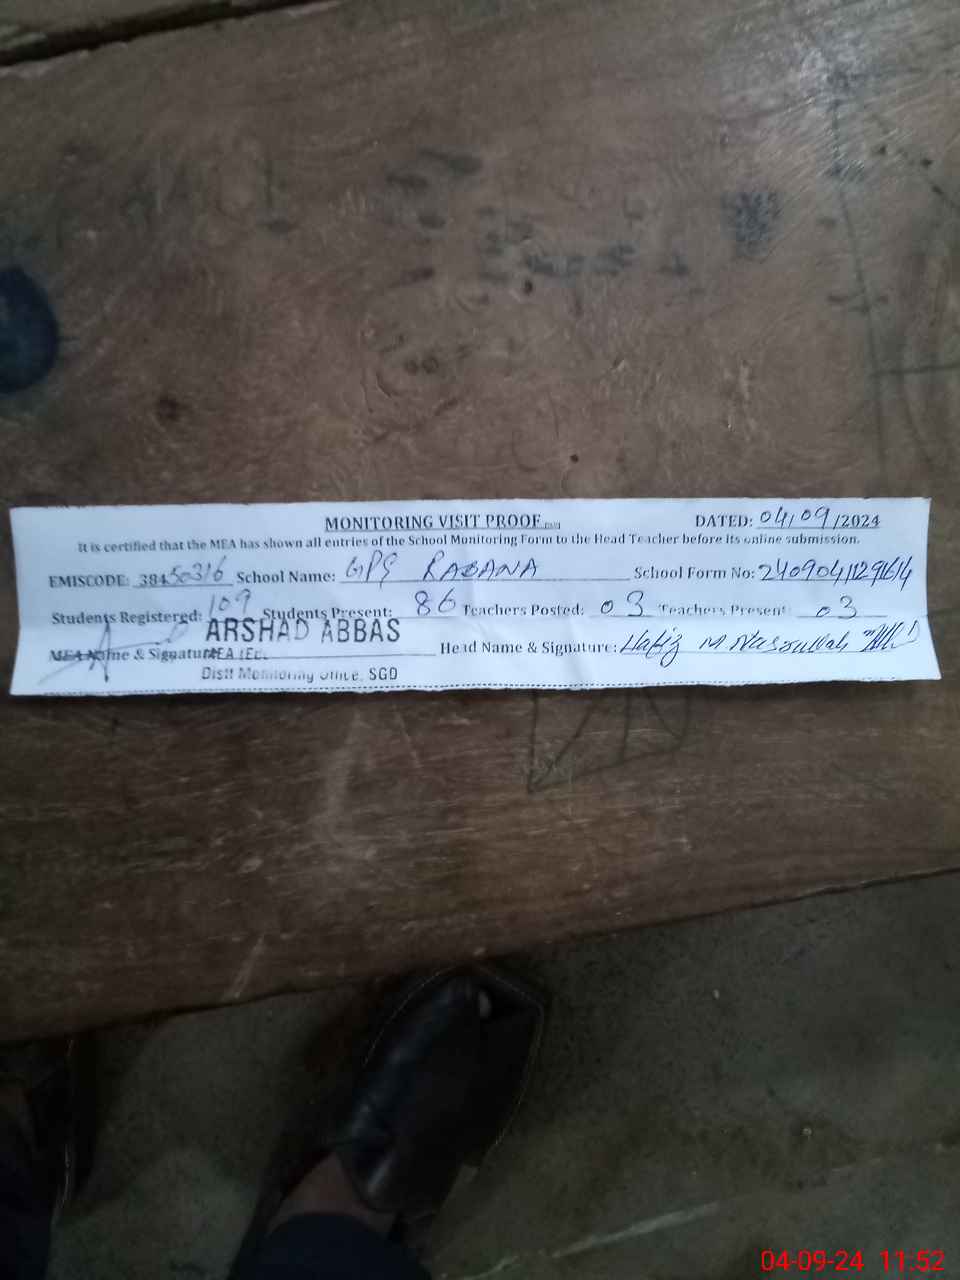 MONITORING VISIT PROOF
DATED: 04/09/2024
It is certified that the MEA has shown all entries of the School Monitoring Form to the Head Teacher before its online submission.
EMISCODE: 38450316 School Name: GPS RABANA School Form No: 24090411291614
Students Registered: 109 Students Present: 86 Teachers Posted: 03 Teachers Present: 03
ARSHAD ABBAS
MEA Name & Signature Head Name & Signature: Hafiz M Nasrullah
Distt Monitoring Office, SGD
04-09-24 11:52